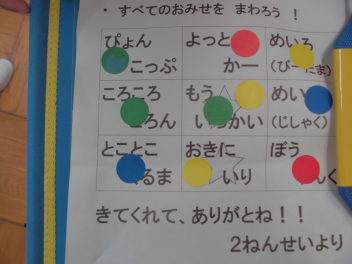 ・ すべてのおみせを まわろう !
ぴょん
こっぷ
よっと
かー
めいろ
(びーだま)
ころころ
ろん
もう
かい
めい
(じしゃく)
とことこ
るま
おきに
いり
ぼう
きてくれて、ありがとね!!
2ねんせいより